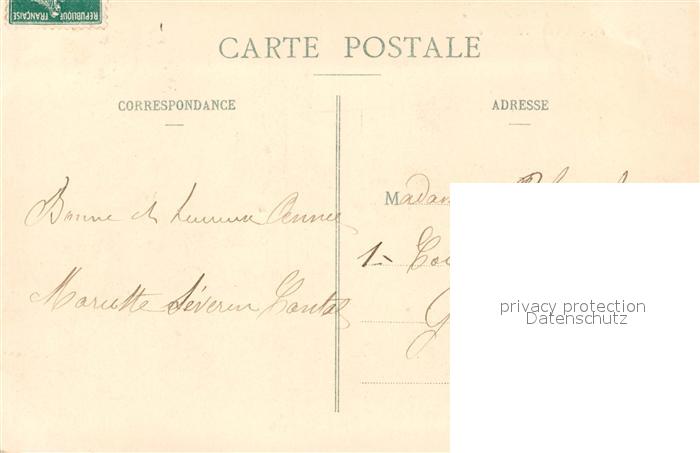 REPUBLIQUE FRANÇAISE
CARTE POSTALE
CORRESPONDANCE
ADRESSE
Bonne et heureuse Année
Mariette Séverin
Madam
1-
privacy protection
Datenschutz